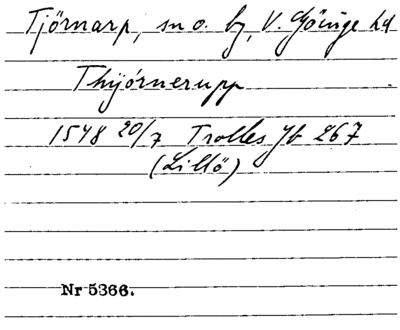 Tjörnarp, sn o. by, V. Göinge hd
Thyörnerupp
1548 20/7 Trolles Jb 267
(Lillö)
Nr 5366.